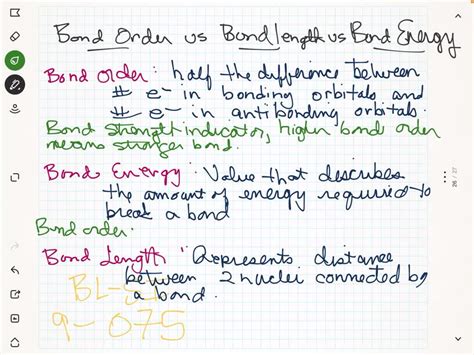 Bond Order vs Bond length vs Bond Energy
Bond Order: half the difference between
# e- in bonding orbitals and
# e- in antibonding orbitals.
Bond strength indicator, higher bond order
means stronger bond.
Bond Energy: Value that describes
the amount of energy required to
break a bond
Bond order:
Bond Length: Represents distance
between 2 nuclei connected by
a bond.
BL-
9-075
26 / 27